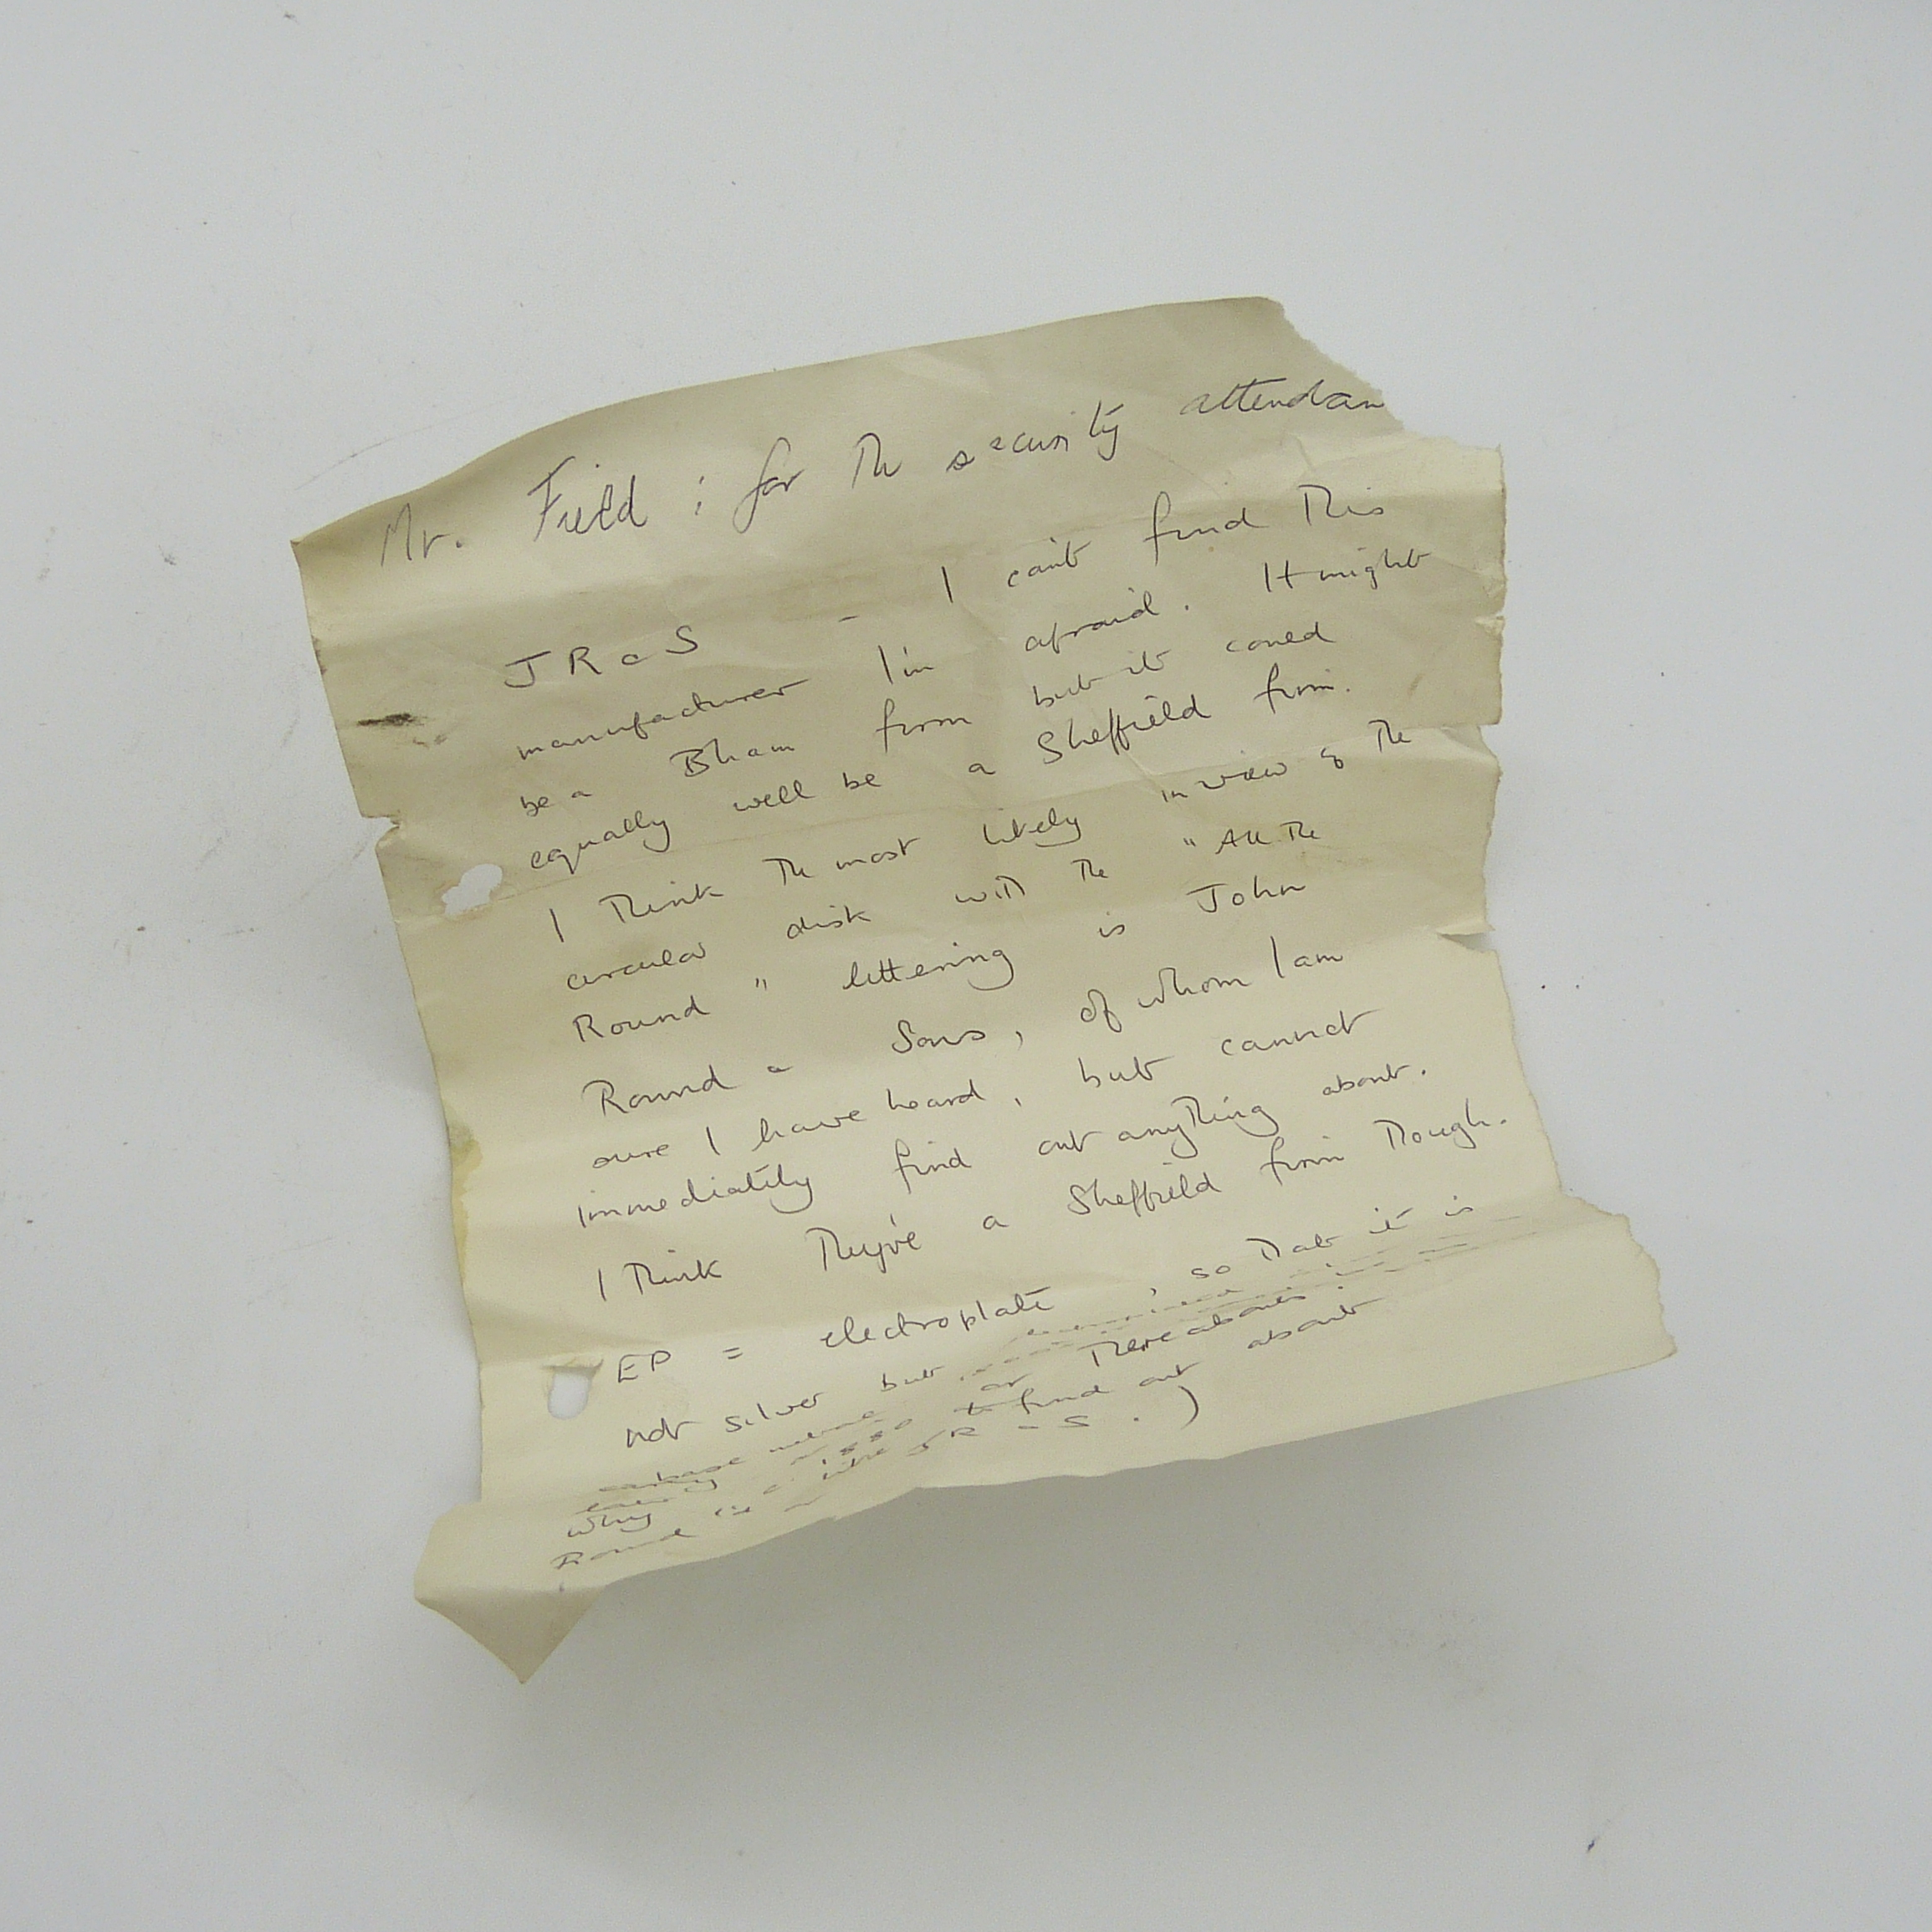 Mr. Field : for the security attendan
JR & S - I can't find this
manufacturer I'm afraid. It might
be a Bham firm but it could
equally well be a Sheffield firm.
I think the most likely in view of the
circular disk with the "All the
Round" lettering is John
Round & Sons, of whom I am
sure I have heard, but cannot
immediately find out anything about.
I think they're a Sheffield firm though.
EP = electroplate, so that it is
not silver but
or thereabouts.
why to find out about
Round JR & S.)